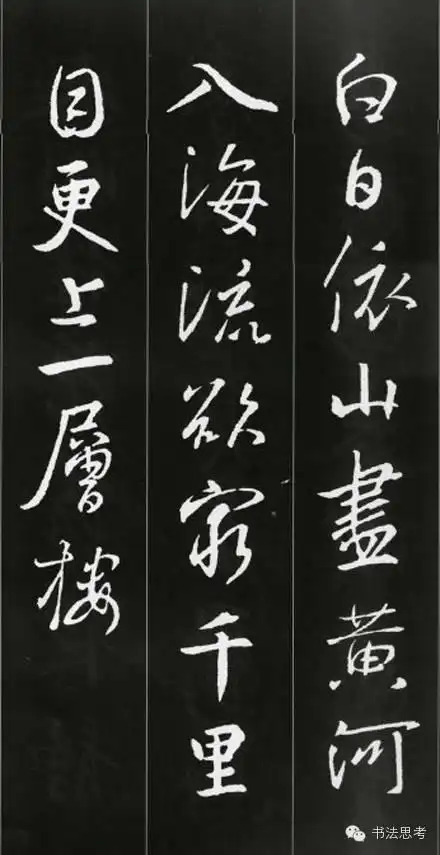 白日依山盡黄河
入海流欲窮千里
目更上一層樓
书法思考